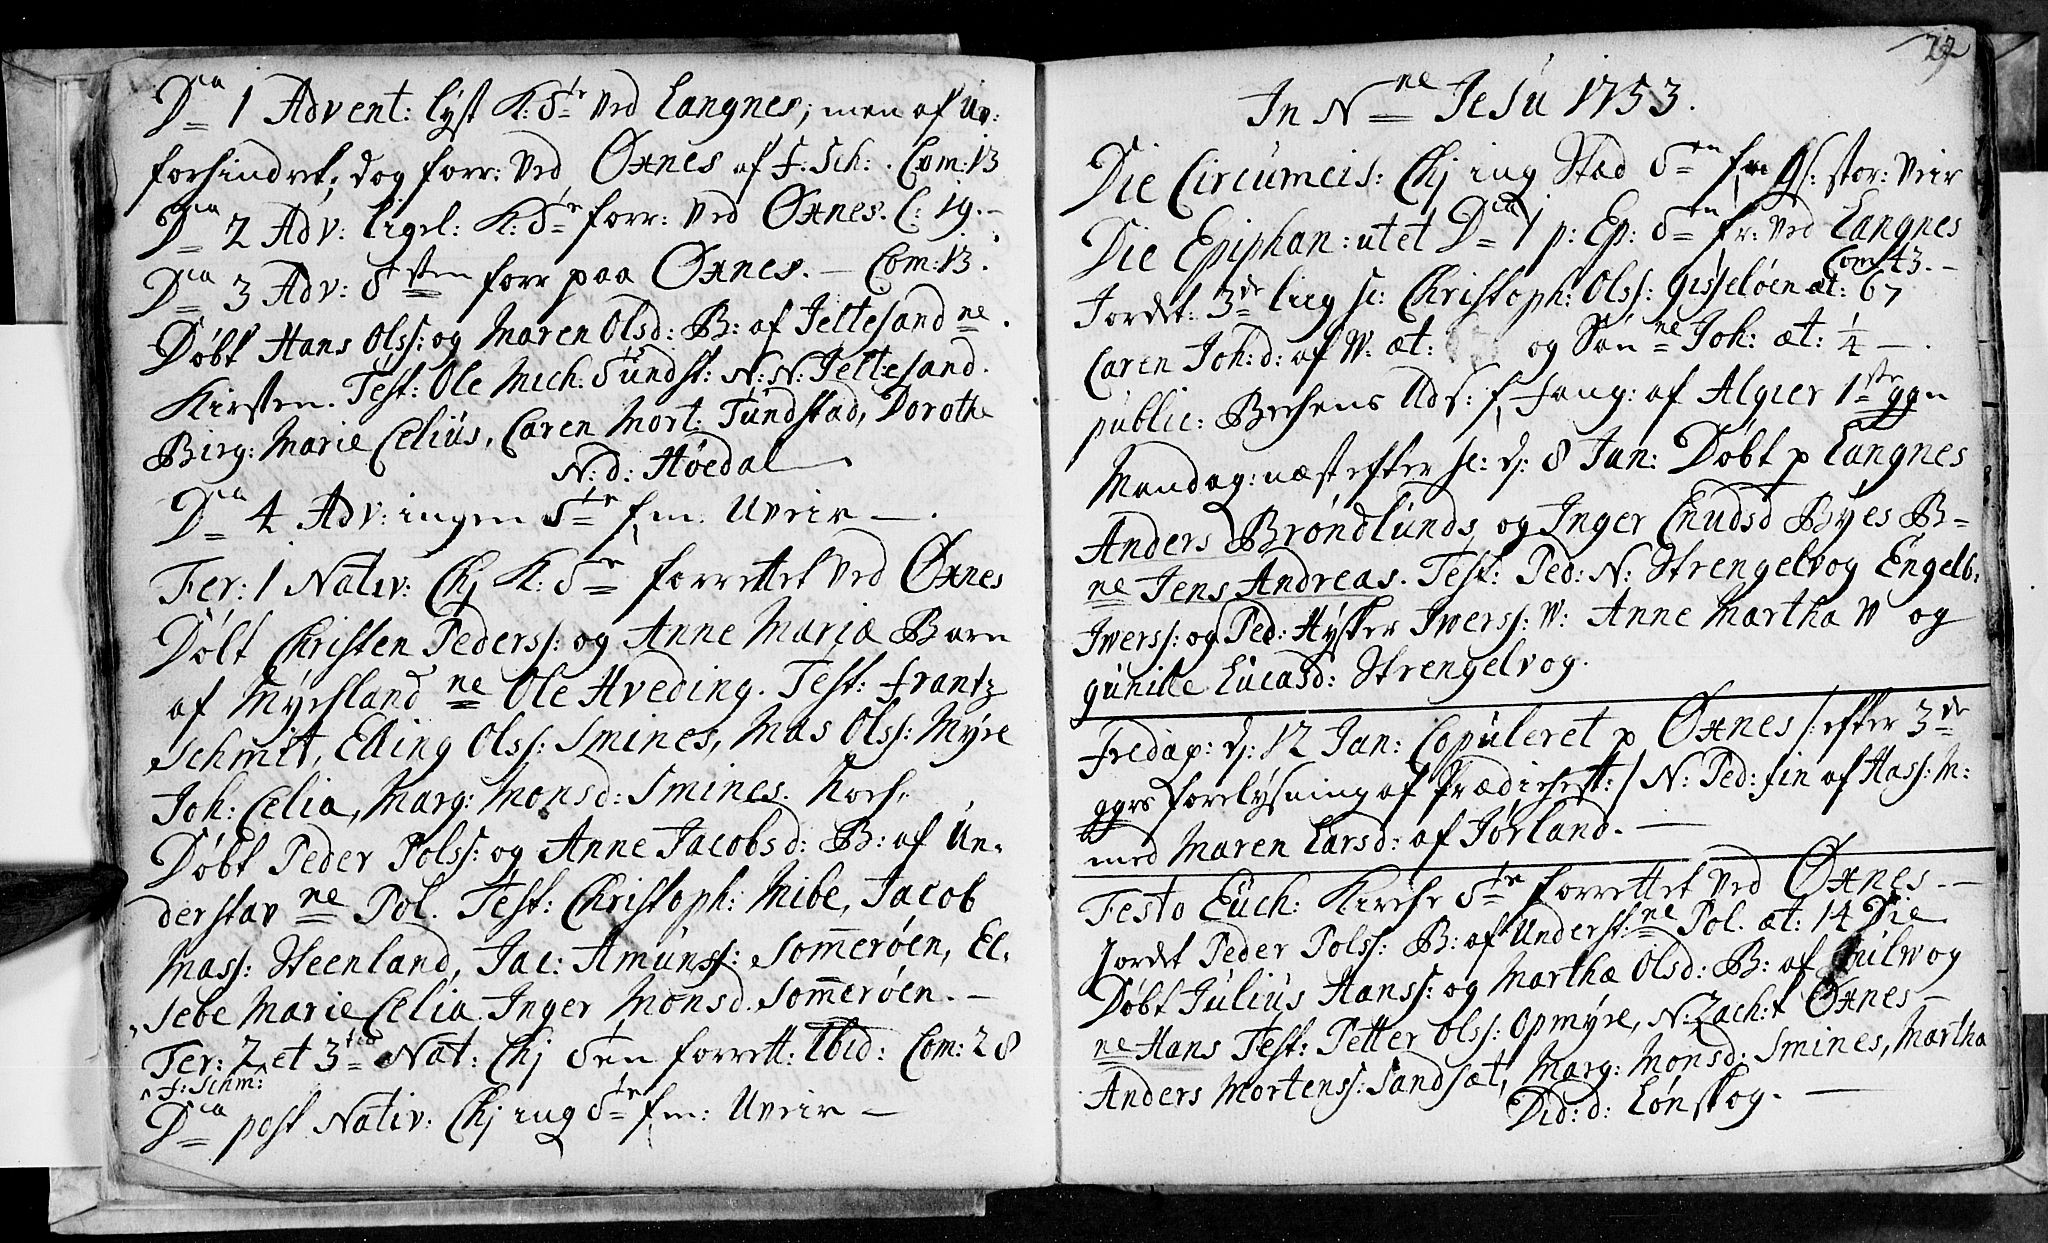 Dca 1 Advent: lyst K: Ste ved Langnes; men af Uv:
forhindret; dog forr: ved Øxnes af F. Sch: . Com: 13
Dca 2 Adv: ligel: K: Ste forr: ved Øxnes. C: 19. –
Dca 3 Adv: Sten forr paa Øxnes. – Com: 13.
Døbt Hans Olss: og Maren Olsd: B: af Jeltesand ne.
Kirsten. Test: Ole Mich. Sundst: N: N: Jeltesand.
Birg: Marie Celius, Caren Mort: Tundstad, Dorothe
N: d: Høedal
Dca 4 Adv: ingen Ste fm: Uveir – .
Fer: 1 Nativ: Chj K: Ste forrettet ved Øxnes
Døbt Christen Pederss: og Anne Mariæ Barn
af Myrhsland ne Ole Hveding. Test: Frantz
Schmit, Elling Olss: Smines, Mas Olss: Myre
Joh: Celia, Marg: Monsd: Smines. Noch.
Døbt Peder Polss: og Anne Jacobsd: B: af Un-
derstav ne Pol. Test: Christoph: Mibe, Jacob
Mass: Steenland, Jac: Amunss: Som̅erøen, El-
sebe Marie Celia Inger Monsd. Som̅erøen. –
Fer: 2 et 3tia Nat: Chj Sen forrett: Ibid: Com: 28
F: Schm:
Dca post Nativ: Chj ing Ste fm: Uveir –
29
In Nne Jesu 1753.
Die Circumcis: Chj ing Stad Sen fm stor: Veir
Die Epiphan: ut et Dca 1 p: Ep: Sen fr: ved Langnes
Com: 43. –
Jordet: 3de liig sc: Christoph: Olss: Gisseløen æt: 67
Caren Joh: d: af W: æt: og Søn ne Joh: æt: ¼ – .
public: Bechens Uds: f Fang: af Algier 1ste ggn
Mandag: næst efter sc: d: 8 Jan: Døbt p Langnes
Anders Brøndlunds og Inger Cnudsd Byes B-
ne Jens Andreas. Test: Ped: N: Strengelvog Engelb:
Iverss: og Ped: Hysker Iverss: W: Anne Martha W og
Gunille Lucasd: Strengelvog.
Fredag: d: 12 Jan: Copuleret p Øxnes /: efter 3de
ggrs forelysning af Prædichest: / N: Ped: fin af Hass: M:
med Maren Larsd: af Jørland. –
Festo Euch: Kirche Ste forrettet ved Øxnes. –
Jordet Peder Polss: B: af Underst: ne Pol. æt: 14 Die
Døbt Julius Hanss: og Marthæ Olsd: B: af
ne Hans Test: Petter Olss: Opmyre, N: Zach: f Øxnes –
Anders Mortenss: Sandsæt, Marg: Monsd: Smines, Martha
Did: d: Lønskog. –